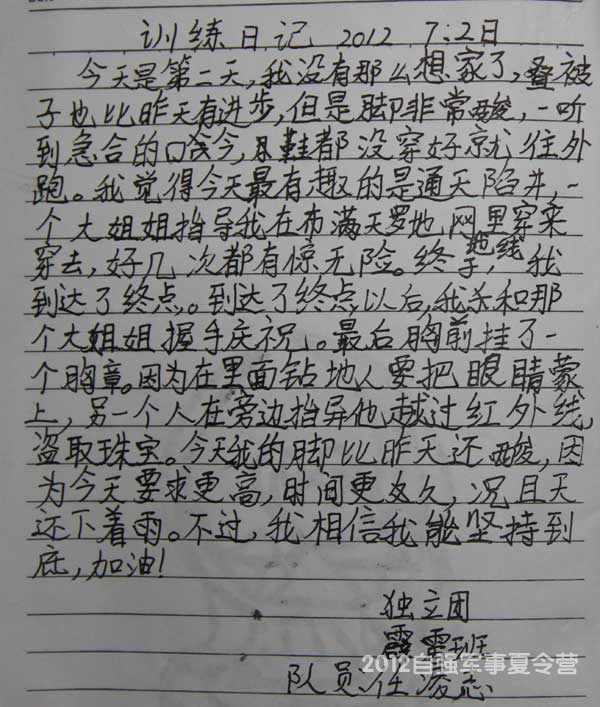 训练日记 2012 7:2日
今天是第二天,我没有那么想家了,叠被
子也比昨天有进步,但是脚非常酸,一听
到急合的口令,鞋都没穿好就往外
跑。我觉得今天最有趣的是通天陷井,一
个大姐姐指导我在布满天罗地网里穿来
穿去,好几次都有惊无险。终于,我
拖线
到达了终点。到达了终点以后,我和那
个大姐姐握手庆祝。最后胸前挂了一
个胸章。因为在里面钻地人要把眼睛蒙
上,另一个人在旁边指导他越过红外线,
盗取珠宝。今天我的脚比昨天还酸,因
为今天要求更高,时间更久,况且天
还下着雨。不过,我相信我能坚持到
底,加油!
独立团
霹雳班
队员:任凌志
2012自强军事夏令营